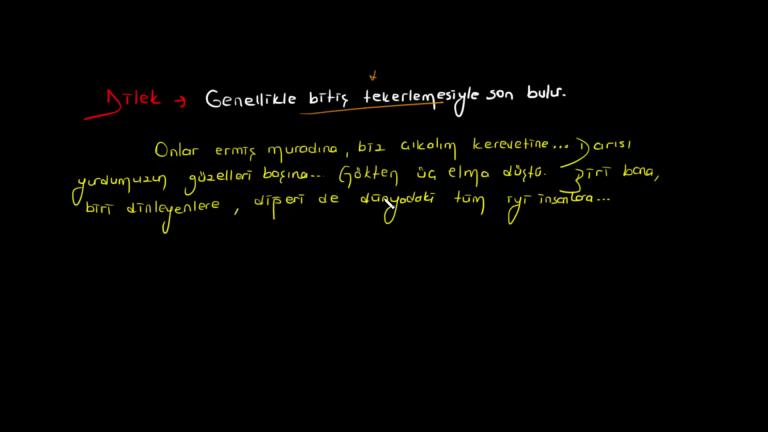 Dilek → Genellikle bitiş tekerlemesiyle son bulur.
Onlar ermiş muradına, biz çıkalım kerevetine... Darısı
yurdumuzun güzelleri başına... Gökten üç elma düştü. Biri bana,
biri dinleyenlere, diğeri de dünyadaki tüm iyi insanlara...